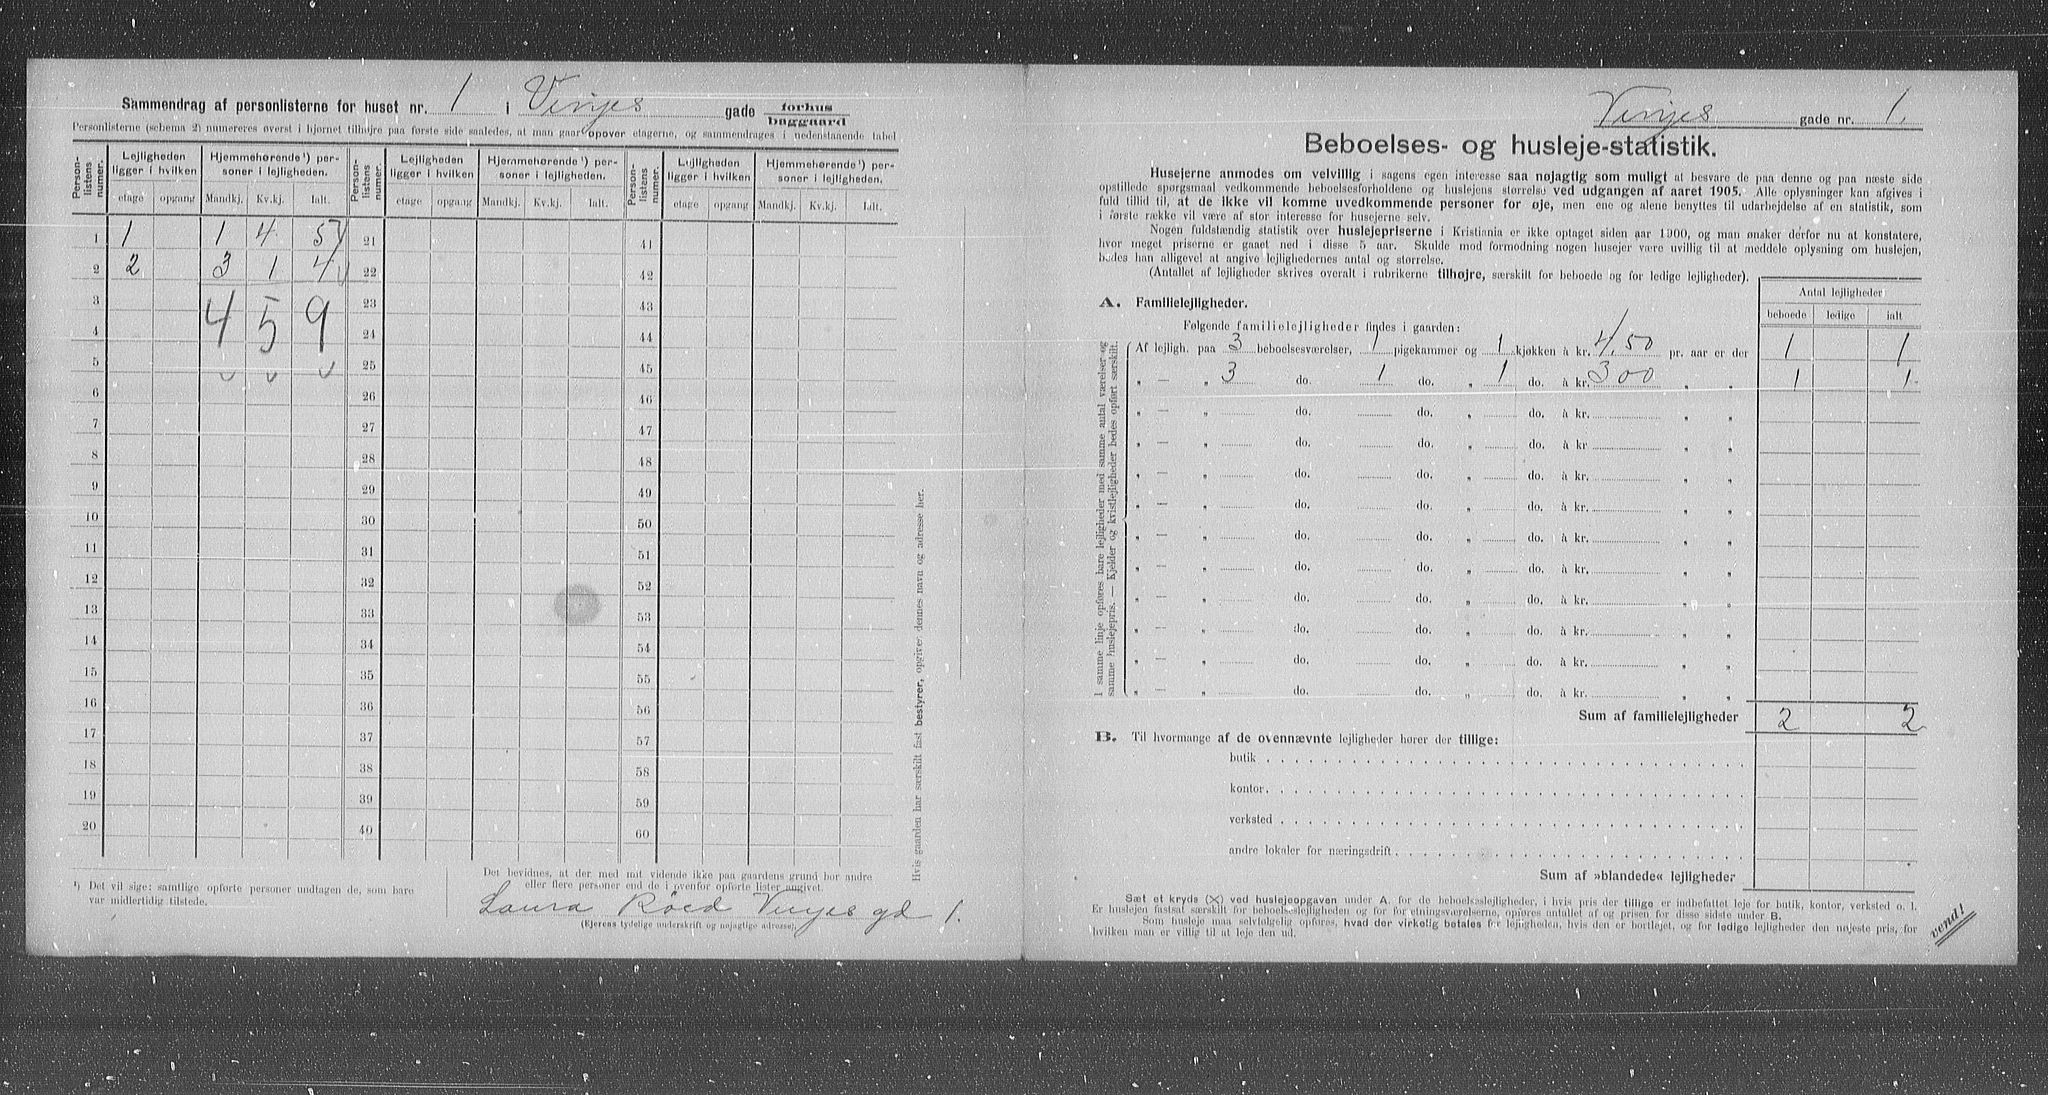 Sammendrag af personlisterne for huset nr. 1 i Vinjes gade forhus baggaard
Personlisterne (schema 2) numereres øverst i hjørnet tilhøjre paa første side saaledes, at man gaar opover etagerne, og sammendrages i nedenstaaende tabel
Personlistens numer. Lejligheden ligger i hvilken Hjemmehørende¹) personer i lejligheden. Personlistens numer. Lejligheden ligger i hvilken Hjemmehørende¹) personer i lejligheden. Personlistens numer. Lejligheden ligger i hvilken Hjemmehørende¹) personer i lejligheden.
etage opgang Mandkj. Kv.kj. Ialt. etage opgang Mandkj. Kv.kj. Ialt. etage opgang Mandkj. Kv.kj. Ialt.
1 1 1 4 5 21 41
2 2 3 1 4 22 42
3 4 5 9 23 43
4 24 44
5 25 45
6 26 46
7 27 47
8 28 48
9 29 49
10 30 50
11 31 51
12 32 52
13 33 53
14 34 54
15 35 55
16 36 56
17 37 57
18 38 58
19 39 59
20 40 60
¹) Det vil sige: samtlige opførte personer undtagen de, som bare
var midlertidig tilstede.
Det bevidnes, at der med mit vidende ikke paa gaardens grund bor andre
eller flere personer end de i ovenfor opførte lister angivet.
Laura Röed Vinjes gd 1.
(Ejerens tydelige underskrift og nøjagtige adresse).
Hvis gaarden har særskilt fast bestyrer, opgives dennes navn og adresse her.
Vinjes gade nr. 1.
Beboelses- og husleje-statistik.
Husejerne anmodes om velvillig i sagens egen interesse saa nøjagtig som muligt at besvare de paa denne og paa næste side
opstillede spørgsmaal vedkommende beboelsesforholdene og huslejens størrelse ved udgangen af aaret 1905. Alle oplysninger kan afgives i
fuld tillid til, at de ikke vil komme uvedkommende personer for øje, men ene og alene benyttes til udarbejdelse af en statistik, som
i første række vil være af stor interesse for husejerne selv.
Nogen fuldstændig statistik over huslejepriserne i Kristiania er ikke optaget siden aar 1900, og man ønsker derfor nu at konstatere,
hvor meget priserne er gaaet ned i disse 5 aar. Skulde mod formodning nogen husejer være uvillig til at meddele oplysning om huslejen,
bedes han alligevel at angive lejlighedernes antal og størrelse.
(Antallet af lejligheder skrives overalt i rubrikerne tilhøjre, særskilt for beboede og for ledige lejligheder).
Antal lejligheder
beboede ledige ialt
A. Familielejligheder.
Følgende familielejligheder findes i gaarden:
Af lejligh. paa 3 beboelsesværelser, 1 pigekammer og 1 kjøkken à kr. 4,50 pr. aar er der 1 1
„ — „ 3 do. 1 do. „ 1 do. à kr. 300 „ „ 1 1
„ — „ do. do. „ do. à kr. „ „
„ — „ do. do. „ do. à kr. „ „
„ — „ do. do. „ do. à kr. „ „
„ — „ do. do. „ do. à kr. „ „
„ — „ do. do. „ do. à kr. „ „
„ — „ do. do. „ do. à kr. „ „
„ — „ do. do. „ do. à kr. „ „
„ — „ do. do. „ do. à kr. „ „
„ — „ do. do. „ do. à kr. „ „
„ — „ do. do. „ do. à kr. „ „
I samme linje opføres bare lejligheder med samme antal værelser og
samme huslejepris. — Kjelder og kvistlejligheder bedes opført særskilt.
Sum af familielejligheder 2 2
B. Til hvormange af de ovennævnte lejligheder hører der tillige:
butik
kontor
verksted
andre lokaler for næringsdrift
Sum af »blandede« lejligheder
Sæt et kryds (X) ved huslejeopgaven under A. for de beboelseslejligheder, i hvis pris der tillige er indbefattet leje for butik, kontor, verksted o. l.
Er huslejen fastsat særskilt for beboelseslejligheden og for forretningsværelserne, opføres antallet af og prisen for disse sidste under B.
Som husleje maa selvfølgelig opføres, hvad der virkelig betales for lejligheden, hvis den er bortlejet, og for ledige lejligheder den nøjeste pris, for
hvilken man er villig til at leje den ud.
vend!